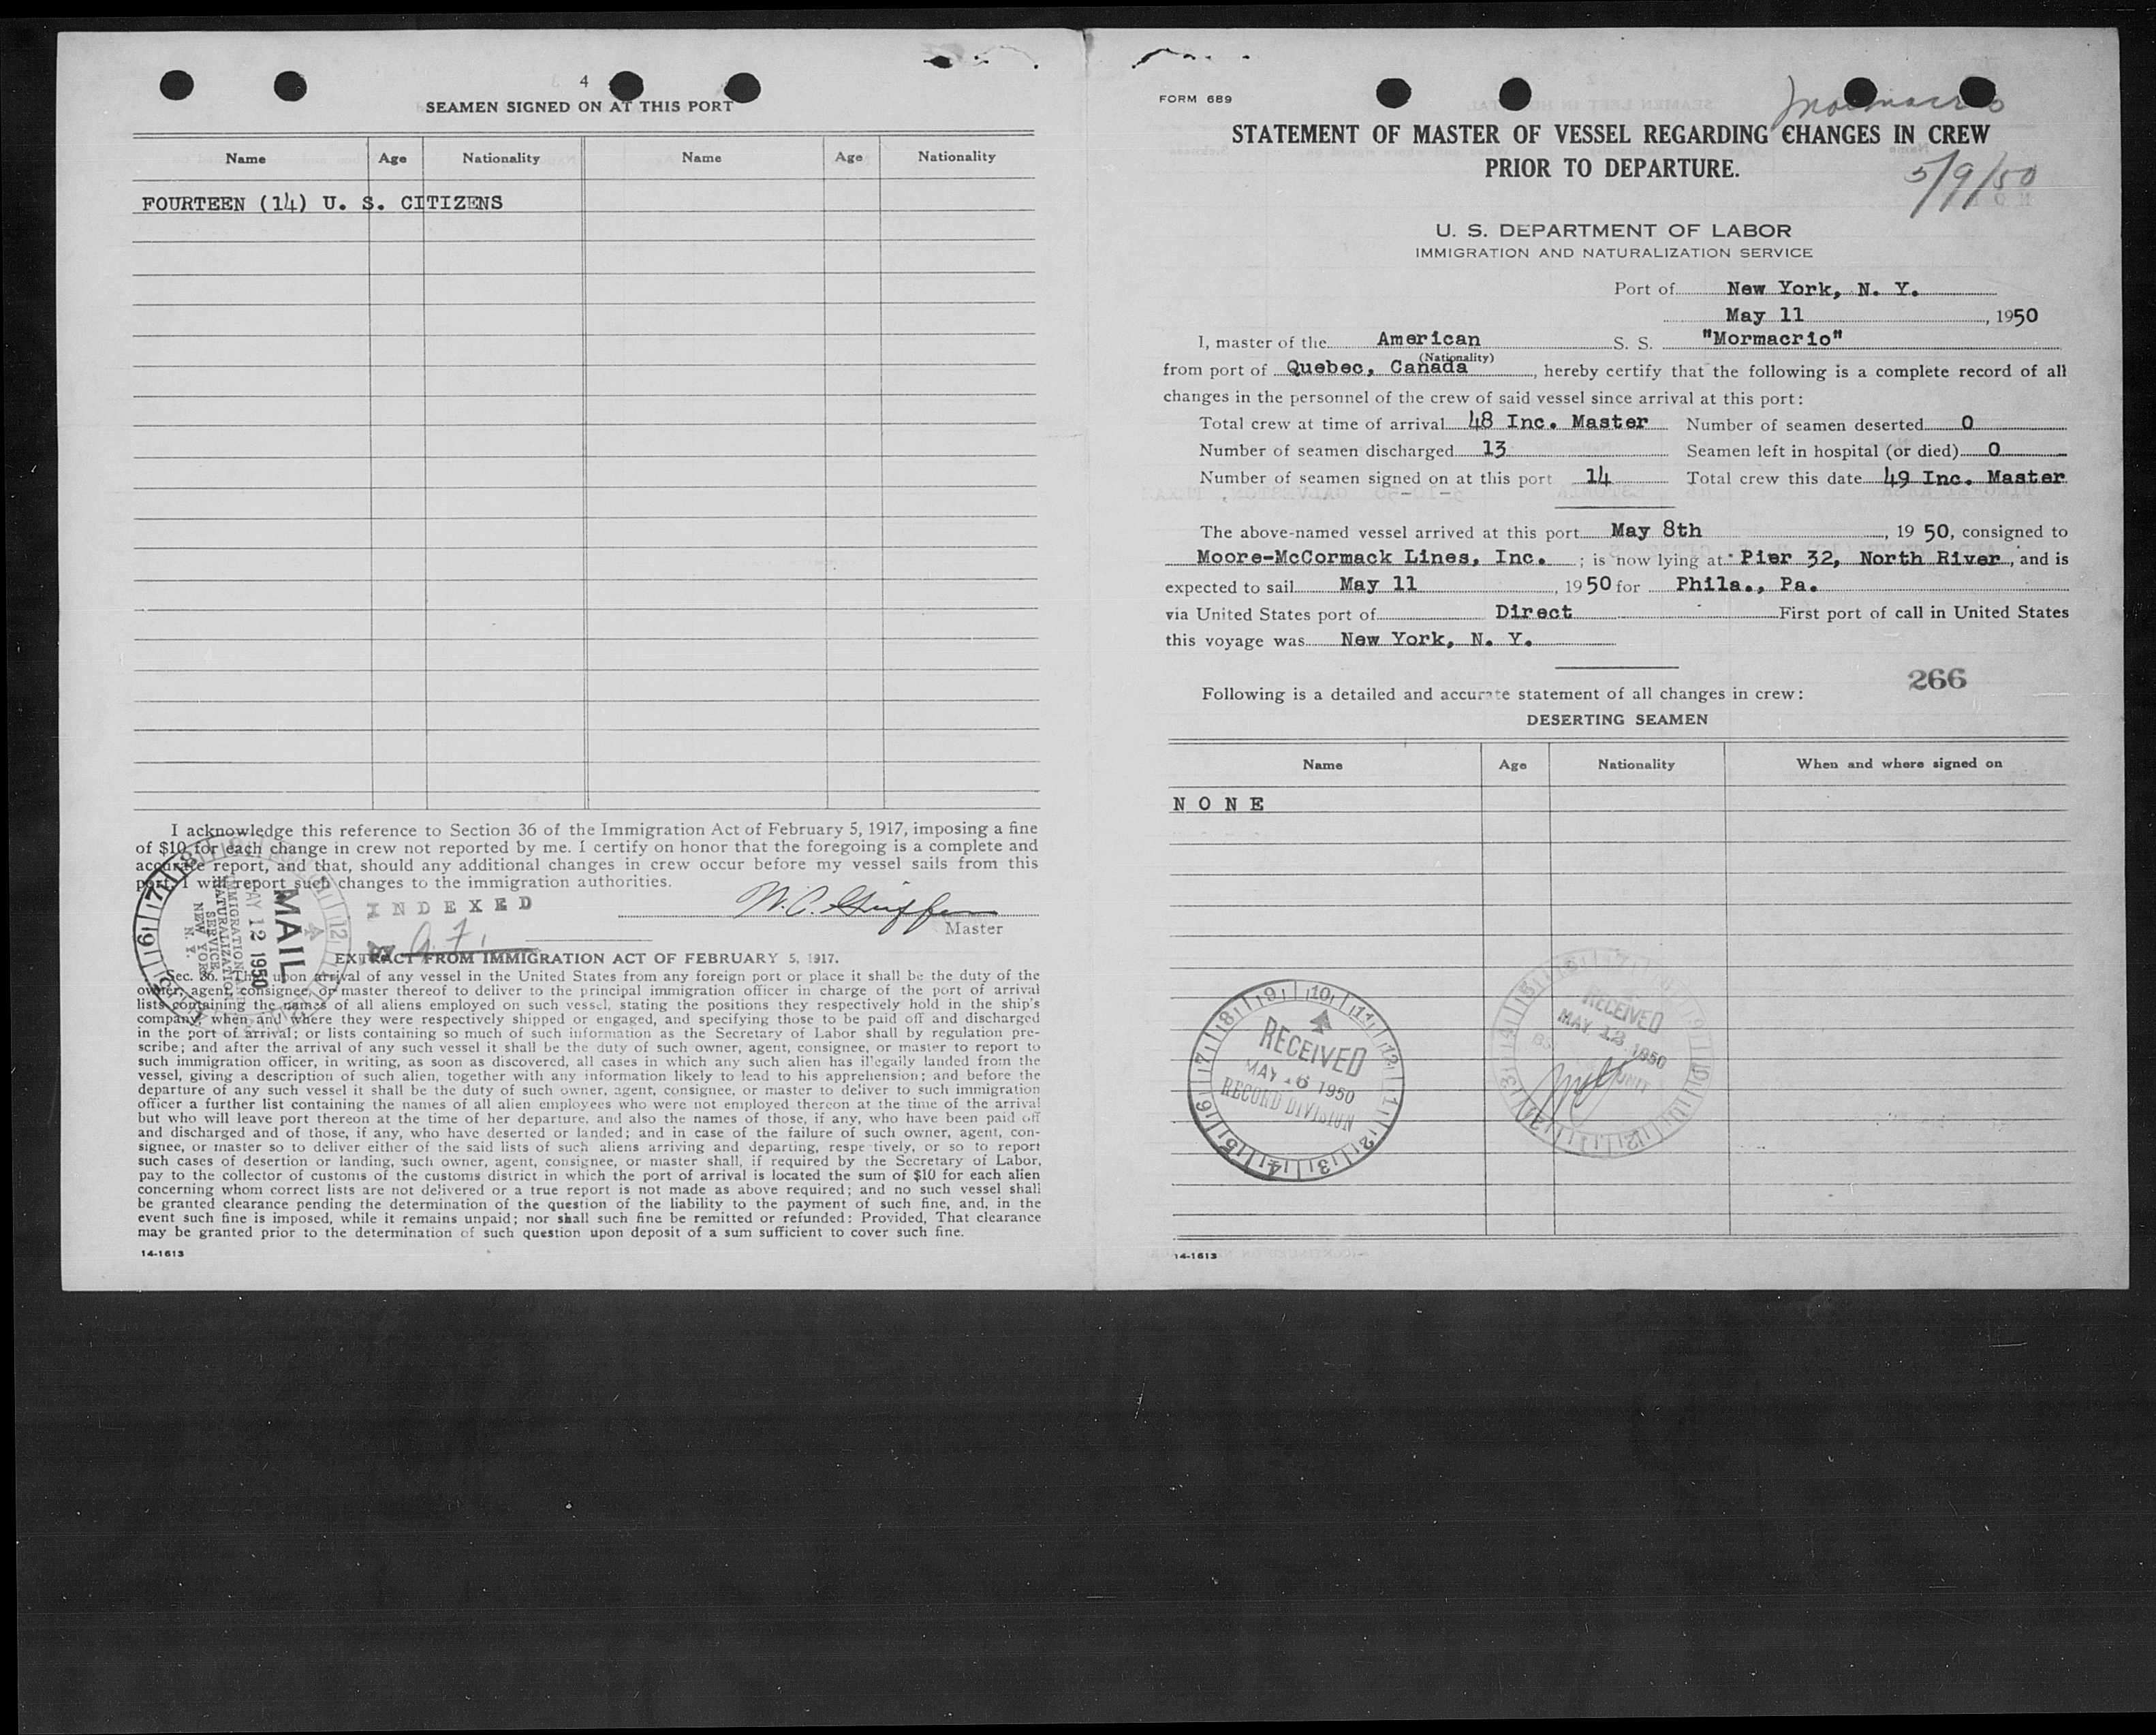 4
SEAMEN SIGNED ON AT THIS PORT
Name Age Nationality Name Age Nationality
FOURTEEN (14) U. S. CITIZENS
I acknowledge this reference to Section 36 of the Immigration Act of February 5, 1917, imposing a fine
of $10 for each change in crew not reported by me. I certify on honor that the foregoing is a complete and
accurate report, and that, should any additional changes in crew occur before my vessel sails from this
port, I will report such changes to the immigration authorities.
INDEXED
Master
MAIL
MAY 12 1950
IMMIGRATION
NATURALIZATION
SERVICE
NEW YORK
N. Y.
EXTRACT FROM IMMIGRATION ACT OF FEBRUARY 5, 1917.
Sec. 36. That upon arrival of any vessel in the United States from any foreign port or place it shall be the duty of the
owner, agent, consignee, or master thereof to deliver to the principal immigration officer in charge of the port of arrival
lists containing the names of all aliens employed on such vessel, stating the positions they respectively hold in the ship's
company, when and where they were respectively shipped or engaged, and specifying those to be paid off and discharged
in the port of arrival; or lists containing so much of such information as the Secretary of Labor shall by regulation pre-
scribe; and after the arrival of any such vessel it shall be the duty of such owner, agent, consignee, or master to report to
such immigration officer, in writing, as soon as discovered, all cases in which any such alien has illegally landed from the
vessel, giving a description of such alien, together with any information likely to lead to his apprehension; and before the
departure of any such vessel it shall be the duty of such owner, agent, consignee, or master to deliver to such immigration
officer a further list containing the names of all alien employees who were not employed thereon at the time of the arrival
but who will leave port thereon at the time of her departure, and also the names of those, if any, who have been paid off
and discharged and of those, if any, who have deserted or landed; and in case of the failure of such owner, agent, con-
signee, or master so to deliver either of the said lists of such aliens arriving and departing, respe tively, or so to report
such cases of desertion or landing, such owner, agent, consignee, or master shall, if required by the Secretary of Labor,
pay to the collector of customs of the customs district in which the port of arrival is located the sum of $10 for each alien
concerning whom correct lists are not delivered or a true report is not made as above required; and no such vessel shall
be granted clearance pending the determination of the question of the liability to the payment of such fine, and, in the
event such fine is imposed, while it remains unpaid; nor shall such fine be remitted or refunded: Provided, That clearance
may be granted prior to the determination of such question upon deposit of a sum sufficient to cover such fine.
14-1613
FORM 689
Mormacrio
STATEMENT OF MASTER OF VESSEL REGARDING CHANGES IN CREW
PRIOR TO DEPARTURE.
5/9/50
U. S. DEPARTMENT OF LABOR
IMMIGRATION AND NATURALIZATION SERVICE
Port of New York, N. Y.
May 11, 1950
I, master of the American S. S. "Mormacrio"
(Nationality)
from port of Quebec, Canada, hereby certify that the following is a complete record of all
changes in the personnel of the crew of said vessel since arrival at this port:
Total crew at time of arrival 48 Inc. Master Number of seamen deserted 0
Number of seamen discharged 13 Seamen left in hospital (or died) 0
Number of seamen signed on at this port 14 Total crew this date 49 Inc. Master
The above-named vessel arrived at this port May 8th, 1950, consigned to
Moore-McCormack Lines, Inc. ; is now lying at Pier 32, North River, and is
expected to sail May 11, 1950 for Phila., Pa.
via United States port of Direct First port of call in United States
this voyage was New York, N. Y.
266
Following is a detailed and accurate statement of all changes in crew:
DESERTING SEAMEN
Name Age Nationality When and where signed on
NONE
RECEIVED
MAY 16 1950
RECORD DIVISION
RECEIVED
MAY 12 1950
UNIT
14-1613